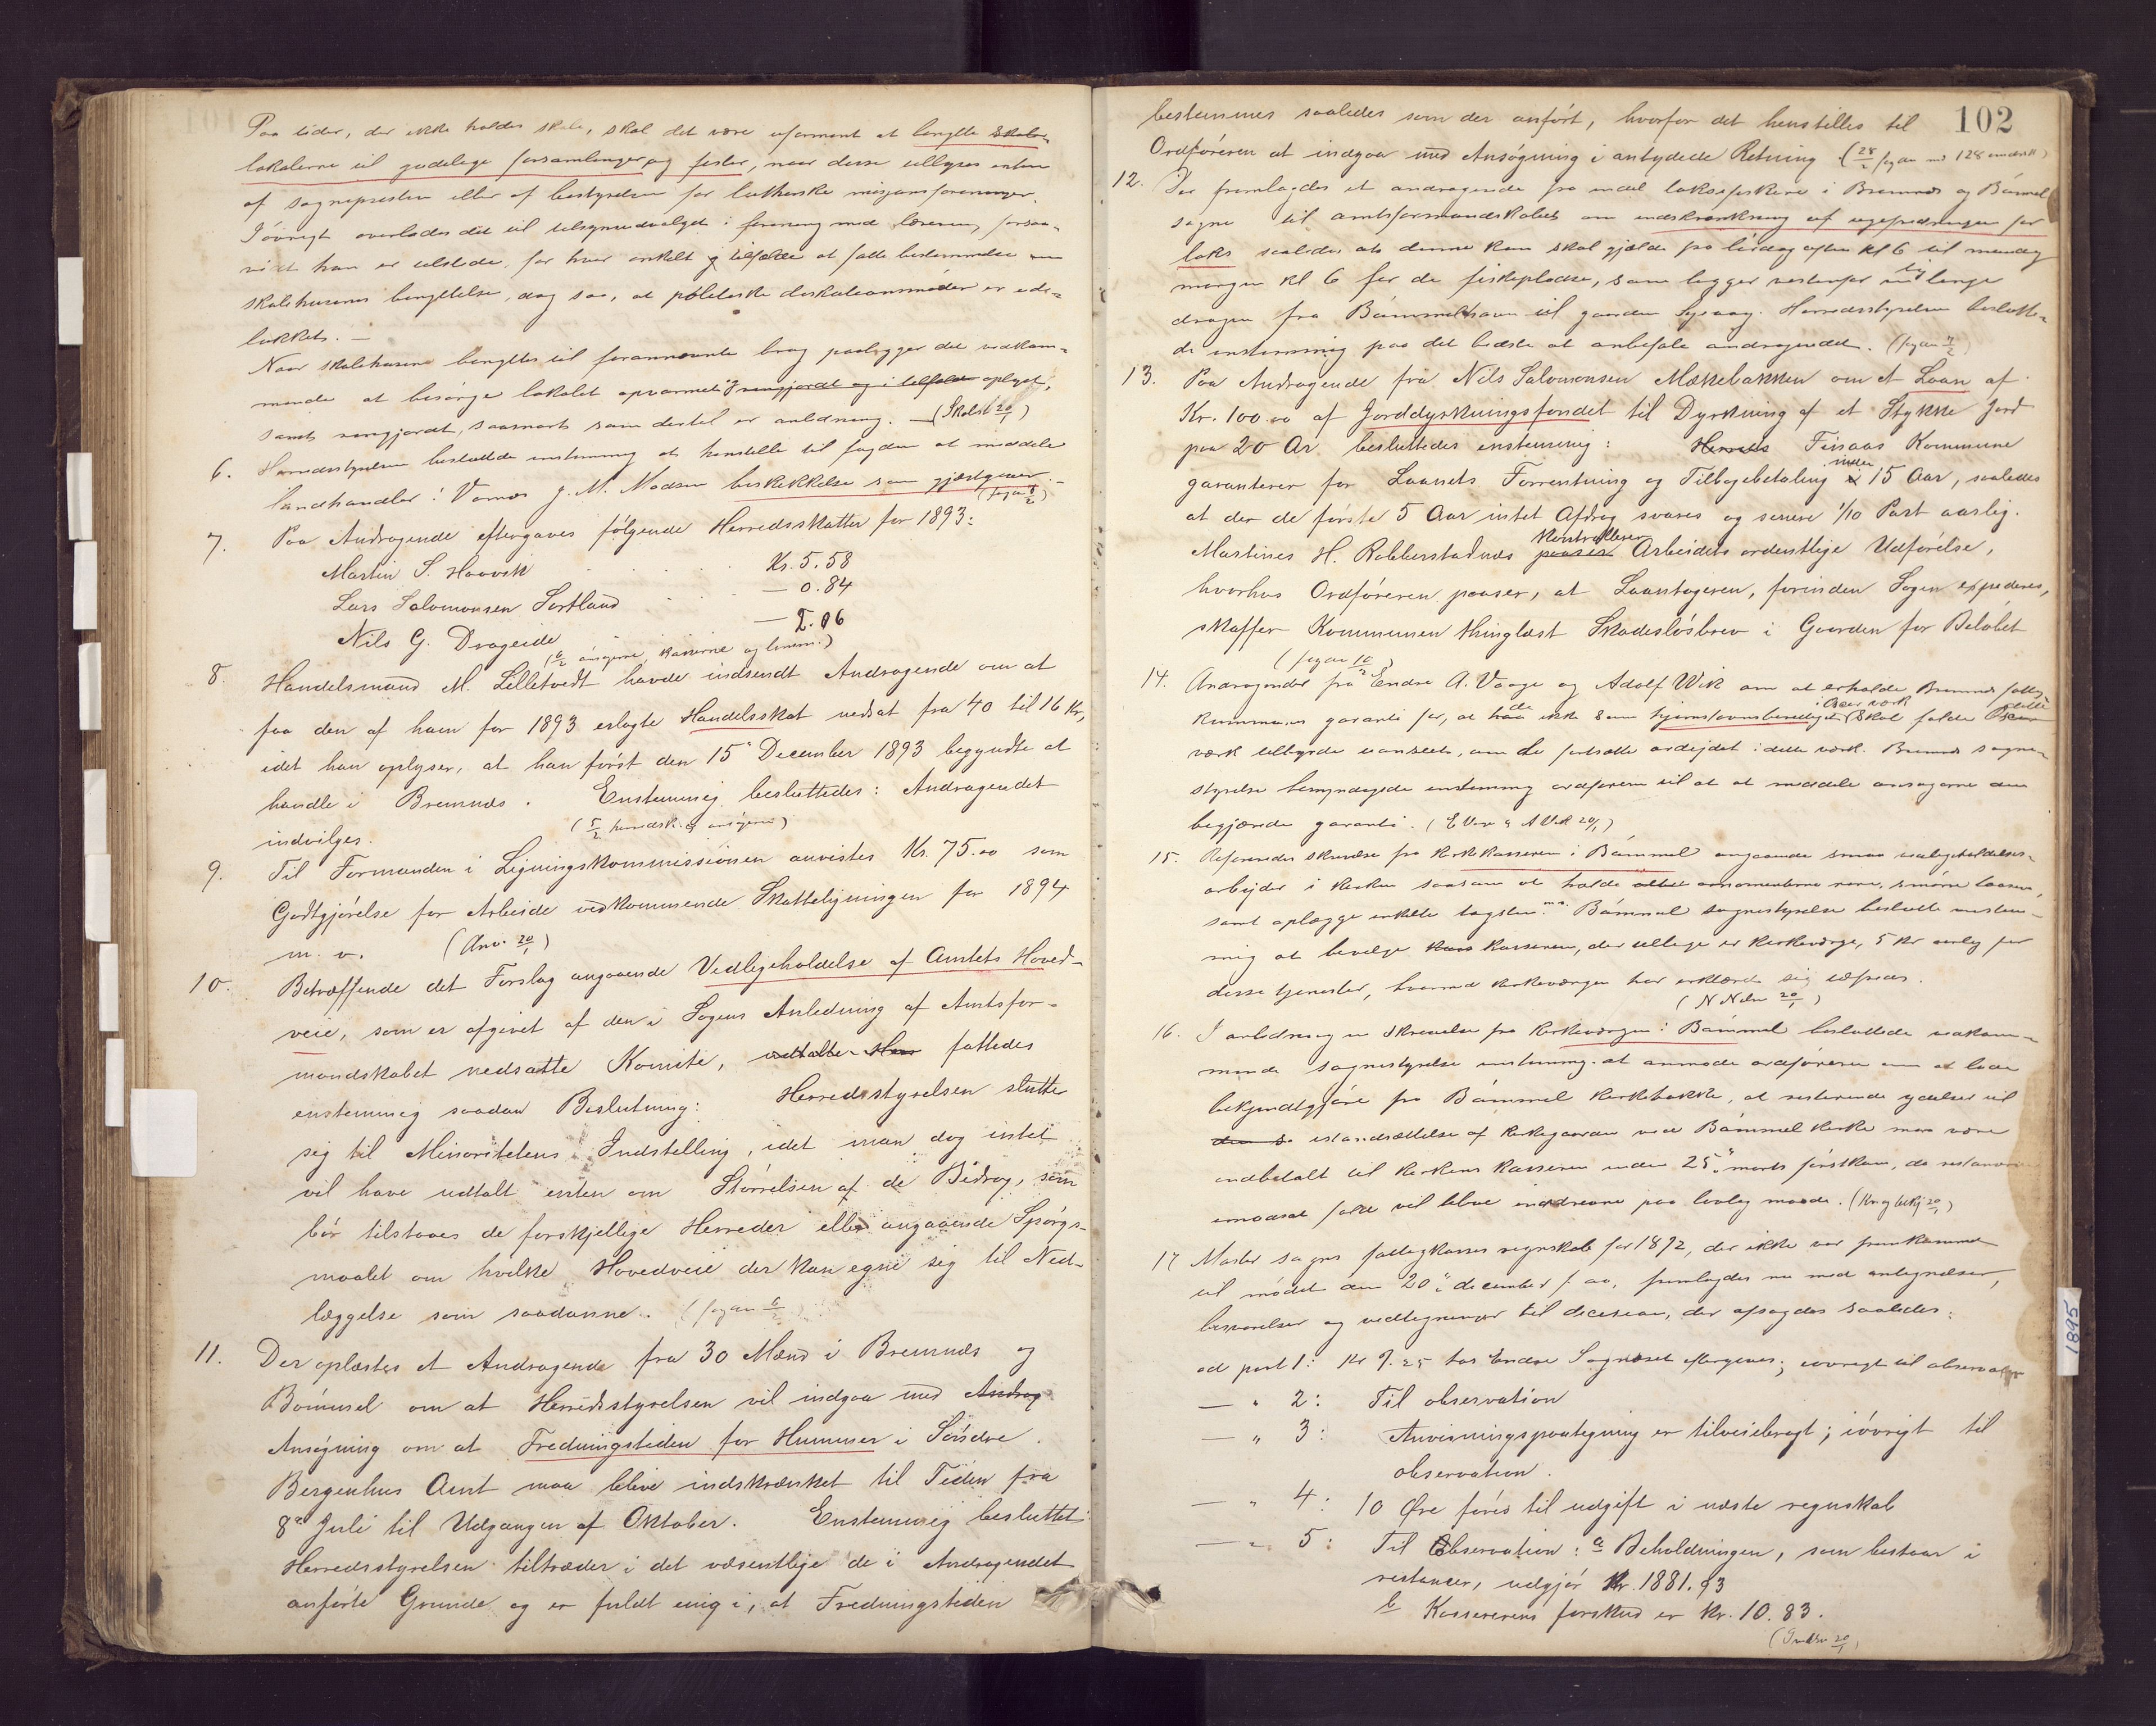 Paa tider, der ikke holdes skole, skal det være uforment at benytte skole-
lokalerne til gudelige forsamlinger og fester, naar disse tillyses enten
af sognepresten eller af bestyrelsen for lutherske misjonsforeninger.
Iøvrigt overlades det til tilsynsudvalget i forening med læreren, forsaa-
vidt han er tilstede, for hver enkelt tilfælde at fatte bestemmelse om
skolehusenes benyttelse, dog saa, at politiske diskusionsmøder er ude-
lukket. —
Naar skolehusene benyttes til forannævnte brug paaligger det vedkom-
mende at besørge lokalet opvarmet, rengjordt og i tilfælde oplyst,
samt rengjordt, saasnart som dertil er anledning. — (Skolest 20/1)
6. Herredsstyrelsen besluttede enstemmig at henstille til fogden at meddele
landhandler i Vornes J. M. Madsen beskikkelse som gjæstgiver.
(fogden 8/2)
7. Paa Andragende eftergaves følgende Herredsskatter for 1893:
Martin S. Hoovik Kr. 5.58
Lars Salomonsen Sortland — 0.84
Nils G. Drageide — 2.06
(6/2 ansøgerne, kasserne og lensm.)
8. Handelsmand M. Lilletvedt havde indsendt Andragende om at
faa den af ham for 1893 erlagte Handelsskat nedsat fra 40 til 16 Kr,
idet han oplyser, at han først den 15 December 1893 begyndte at
handle i Bremnes. Enstemmig besluttedes: Andragendet
indvilges. (5/2 herredsk. og ansøgeren)
9. Til Formanden i Ligningskommissionen anvistes Kr. 75.00 som
Godtgjørelse for Arbeide vedkommende Skatteligningen for 1894
m. v. (Anv. 20/1)
10. Betræffende det Forslag angaaende Vedligeholdelse af Amtets Hoved-
veie, som er afgivet af den i Sagens Anledning af Amtsfor-
mandskabet nedsatte Komite, udtalte Her fattedes
enstemmig saadan Beslutning: Herredsstyrelsen slutter
sig til Minoritetens Indstilling, idet man dog intet
vil have udtalt enten om Størrelsen af de Bidrag, som
bør tilstaaes de forskjellige Herreder eller angaaende Spørgs-
maalet om hvilke Hovedveie der kan egne sig til Ned-
læggelse som saadanne. (fogden 6/2)
11. Der oplæstes et Andragende fra 30 Mænd i Bremnes og
Bømmel om at Herredsstyrelsen vil indgaa med Andrag
Ansøgning om at Fredningstiden for Hummer i Søndre
Bergenhus Amt maa blive indskrænket til Tiden fra
8de Juli til Udgangen af Oktober. Enstemmig besluttet:
Herredsstyrelsen tiltræder i det væsentlige de i Andragendet
anførte Grunde og er fuldt enig i, at Fredningstiden
102
bestemmes saaledes som der anført, hvorfor det henstilles til
Ordføreren at indgaa med Ansøgning i antydede Retning
12. Der fremlagdes et andragende fra endel laksefiskere i Bremnes og Bømmel
sogne til amtsformandskabet om indskrænkning af ugefredningen for
laks saaledes at denne kun skal gjælde fra lørdag aften kl 6 til mandag
morgen kl 6 for de fiskepladse, som ligger vestenfor en lige
dragen fra Bømmelhavn til gaarden Lyevaag. Herredsstyrelsen beslutte-
de enstemmig paa det bedste at anbefale andragendet.
13. Paa Andragende fra Nils Salomonsen Mækkebakken om et Laan af
Kr. 100.00 af Jorddyrkningsfondet til Dyrkning af et Stykke Jord
paa 20 Ar besluttedes enstemmig: Herreds Finaas Kommune
garanterer for Laanets Forrentning og Tilbagebetaling inden 15 Aar, saaledes
at der de første 5 Aar intet Afdrag svares og senere 1/10 Part aarlig.
Martines H. Robberstadnes paaser Kontrollerer Arbeidets ordentlige Udførelse,
hvorhos Ordføreren paaser, at Laantageren, forinden Sagen expederes,
skaffer Kommunen thinglæst Skadesløsbrev i Gaarden for Beløbet
(fogden 10/2)
14. Andragender fra Endre A. Vaage og Adolf Wik om at erholde Bremnes fattig-
kommunes garanti for, at de ikke som hjemstavnsberettiget skal falde Oscar i Oscar værk
værk tilbyrde uanseet, om de fortsætte ardejdet i dette værk. Bremnes sogne-
styrelse bemyndigede enstemmig ordføreren til at meddele ansøgerne den
begjærede garanti.
15. Refereredes skrivelse fra kirkkasseren i Bømmel angaaende smaa vedligeholdelses-
arbejder i kirken saasom at holde ornamenterne rene, smøre laasene,
samt oplægge enkelte tagsten m.m. Bømmel sognestyrelse besluttede enstem-
mig at bevilge kasseren, der tillige er kirkeværge, 5 kr aarlig for
disse tjenester, hvormed kirkeværgen har erklæret sig tilfreds.
(N Nilsen 20/1)
16. I anledning en skrivelse fra kirkeværgen i Bømmel besluttede vedkom-
mende sognestyrelse enstemmig at anmode ordføreren om at lade
bekjendtgjøre fra Bømmel kirkebakke, at resterende ydelser til
istandsættelse af kirkegaarden ved Bømmel kirke maa være
indbetalt til kirkens kasserer inden 25de marts førstkom, da restancerne
imodsat fald vil blive inddrevne paa lovlig maade.
17 Moster sogns fattigkasses regnskab for 1892, der ikke var fremkommet
til mødet den 20de december f. aa, fremlagdes nu med antegnelser,
besvarelser og vedtegninger til decision, der afsagdes saaledes:
ad post 1: Kr 9.25 hos Endre Sagnæset eftergives; iøvrigt til observation
— " 2: Til observation
— " 3: Anvisningspaategning er tilveiebragt; iøvrigt til
observation.
— " 4: 10 Øre føres til udgift i næste regnskab
— " 5: Til Observation: a Beholdningen, som bestaar i
restancer, udgjør Kr. 1881.93
b Kassererens forskud er Kr. 10.83.
1895